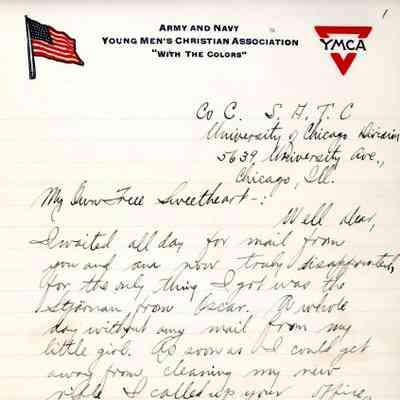 1
ARMY AND NAVY
YOUNG MEN'S CHRISTIAN ASSOCIATION
"WITH THE COLORS"
YMCA
Co C. S. A. T. C
University of Chicago Division
5639, University Ave.,
Chicago, Ill.
My Own Sweetheart -:
Well dear,
I waited all day for mail from
you and am now truly disappointed,
for the only thing I got was the
from Oscar. A whole
day without any mail from my
little girl. As soon as I could get
away from cleaning my new
rifle I called up your office,